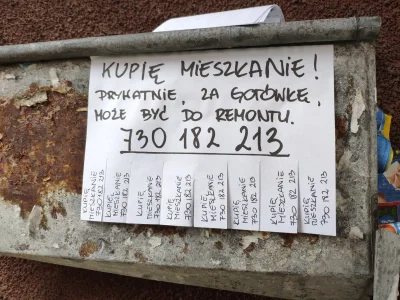 KUPIĘ MIESZKANIE!
PRYWATNIE, ZA GOTÓWKĘ,
MOŻE BYĆ DO REMONTU.
730 182 213
KUPIĘ
MIESZKANIE
730 182 213
KUPIĘ
MIESZKANIE
730 182 213
KUPIĘ
MIESZKANIE
730 182 213
KUPIĘ
MIESZKANIE
730 182 213
KUPIĘ
MIESZKANIE
730 182 213
KUPIĘ
MIESZKANIE
730 182 213
KUPIĘ
MIESZKANIE
730 182 213
KUPIĘ
MIESZKANIE
730 182 213